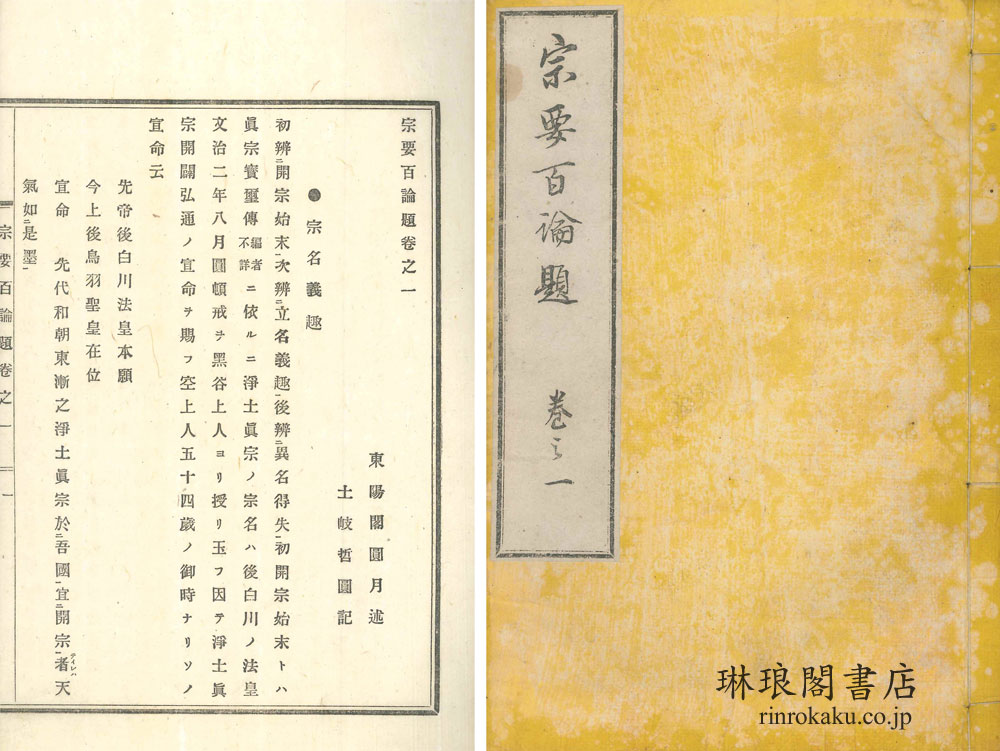 宗要百論題卷之一
東陽閣圓月述
土岐哲圓記
宗名義趣
初辨㆓開宗始末㆒次辨㆓立名義趣㆒後辨㆓異名得失㆒初開宗始末トハ
眞宗寶璽傳編者不詳ニ依ルニ淨土眞宗ノ宗名ハ後白川ノ法皇
文治二年八月圓頓戒ヲ黑谷上人ヨリ授リ玉フ因テ淨土眞
宗開闢弘通ノ宣命ヲ賜フ空上人五十四歲ノ御時ナリソノ
宣命云
先帝後白川法皇本願
今上後鳥羽聖皇在位
宣命 先代和朝東漸之淨土眞宗於㆓吾國㆒宜㆓開宗㆒者テイレハ天
氣如㆑是墨㆒
宗要百論題卷之一 一
宗要百論題 卷之一
琳琅閣書店
rinrokaku.co.jp